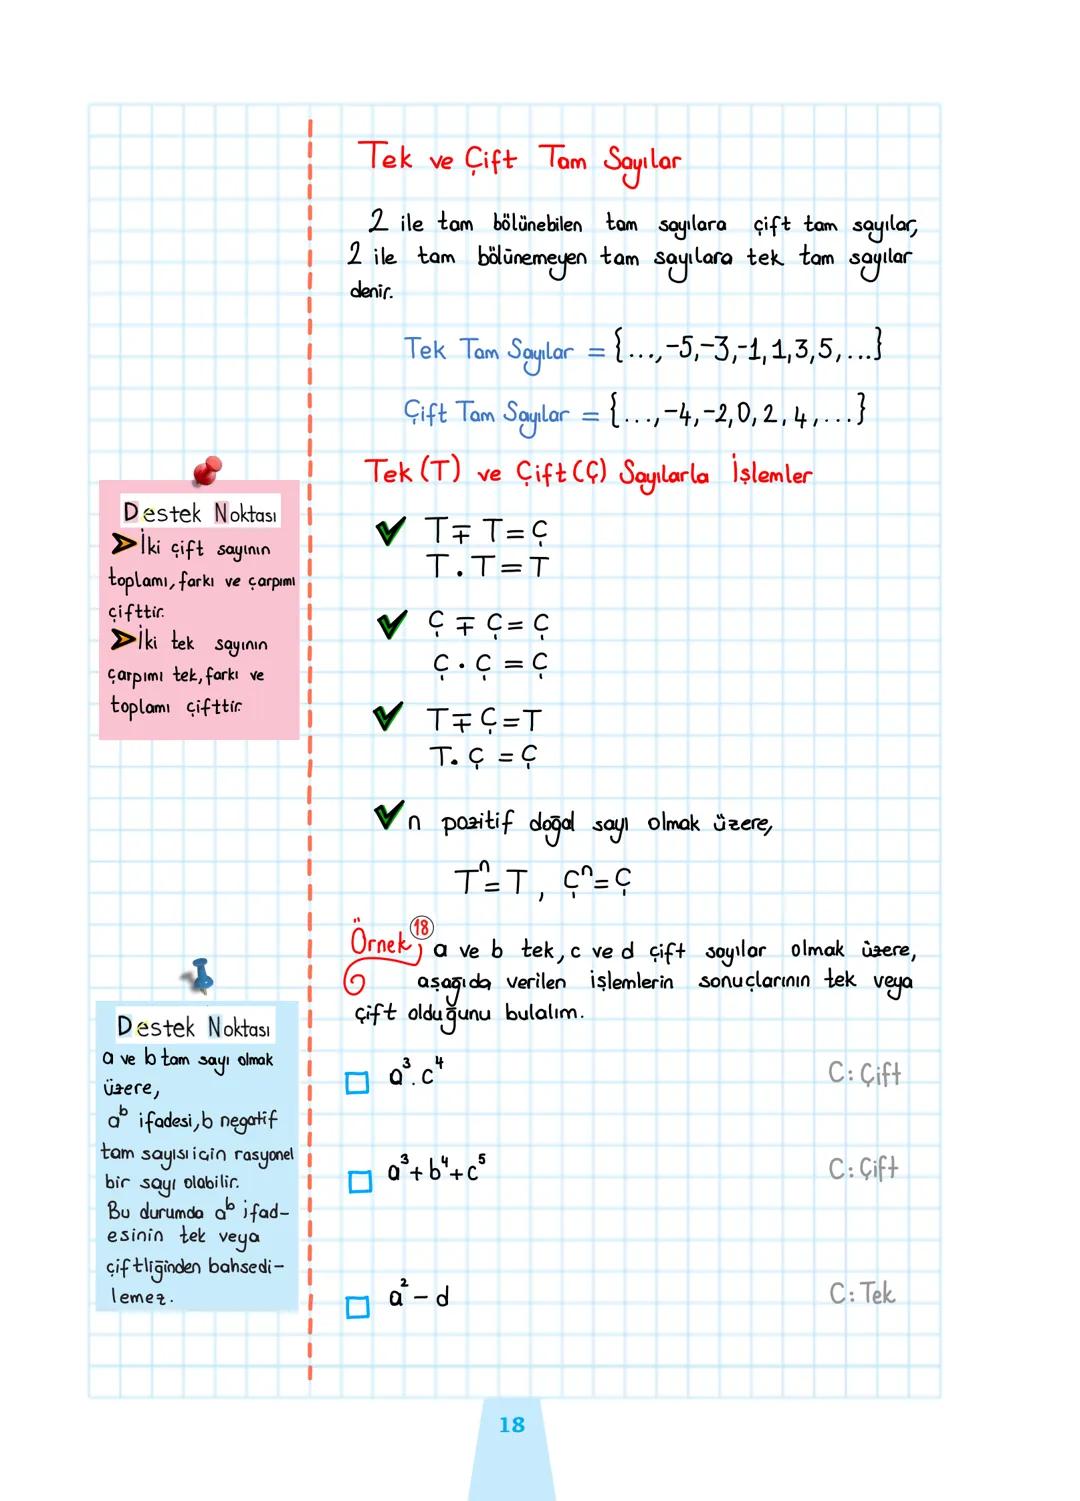 Tek ve Çift Tam Sayılar
2 ile tam bölünebilen tam sayılara çift tam sayılar,
2 ile tam bölünemeyen tam sayılara tek tam sayılar
denir.
Tek Tam Sayılar = {...,-5,-3,-1,1,3,5,...}
Çift Tam Sayılar = {...,-4,-2,0,2,4,...}
Tek (T) ve Çift (Ç) Sayılarla İşlemler
T∓T=Ç
T.T=T
Ç∓Ç=Ç
Ç.Ç=Ç
T∓Ç=T
T.Ç=Ç
n pozitif doğal sayı olmak üzere,
Tⁿ=T, Çⁿ=Ç
Destek Noktası
İki çift sayının
toplamı, farkı ve çarpımı
çifttir.
İki tek sayının
çarpımı tek, farkı ve
toplamı çifttir.
Örnek 18 a ve b tek, c ve d çift sayılar olmak üzere,
aşağıda verilen işlemlerin sonuçlarının tek veya
çift olduğunu bulalım.
a³.c⁴ C: Çift
a³+b⁴+c⁵ C: Çift
a²-d C: Tek
Destek Noktası
a ve b tam sayı olmak
üzere,
aᵇ ifadesi, b negatif
tam sayısı için rasyonel
bir sayı olabilir.
Bu durumda aᵇ ifad-
esinin tek veya
çiftliğinden bahsedi-
lemez.
18